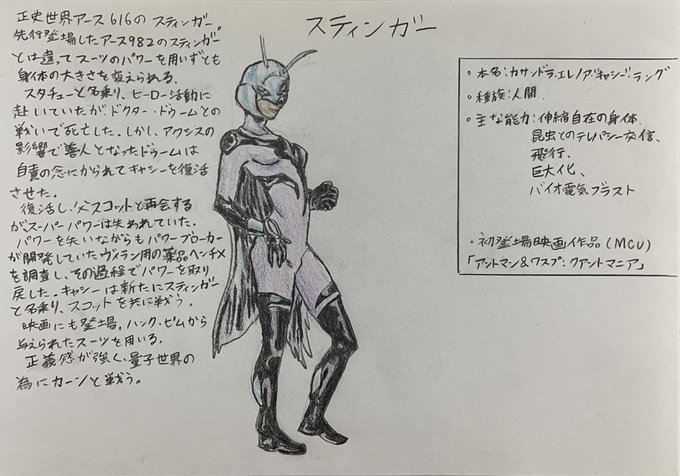 スティンガー
正史世界アース616のスティンガー。
先行登場したアース982のスティンガー
とは違ってスーツのパワーを用いずとも
身体の大きさを変えられる。
スタチューと名乗り、ヒーロー活動に
赴いていたが、ドクター・ドゥームとの
戦いで死亡した。しかし、アクシスの
影響で善人となったドゥームは
自責の念にかられてキャシーを復活
させた。
復活し、父スコットと再会する
がスーパーパワーは失われていた。
パワーを失いながらもパワーブローカー
が開発していたヴィラン用の薬品ヘンチX
を調査し、その過程でパワーを取り
戻した。キャシーは新たにスティンガー
と名乗り、スコットを共に戦う。
映画にも登場。ハンク・ピムから
与えられたスーツを用いる。
正義感が強く、量子世界の
為にカーンと戦う。
・本名:カサンドラ・エレノア“キャシー”ラング
・種族:人間
・主な能力:伸縮自在の身体、
昆虫とのテレパシー交信、
飛行、
巨大化、
バイオ電気ブラスト
・初登場映画作品(MCU)
「アントマン&ワスプ:クアントマニア」